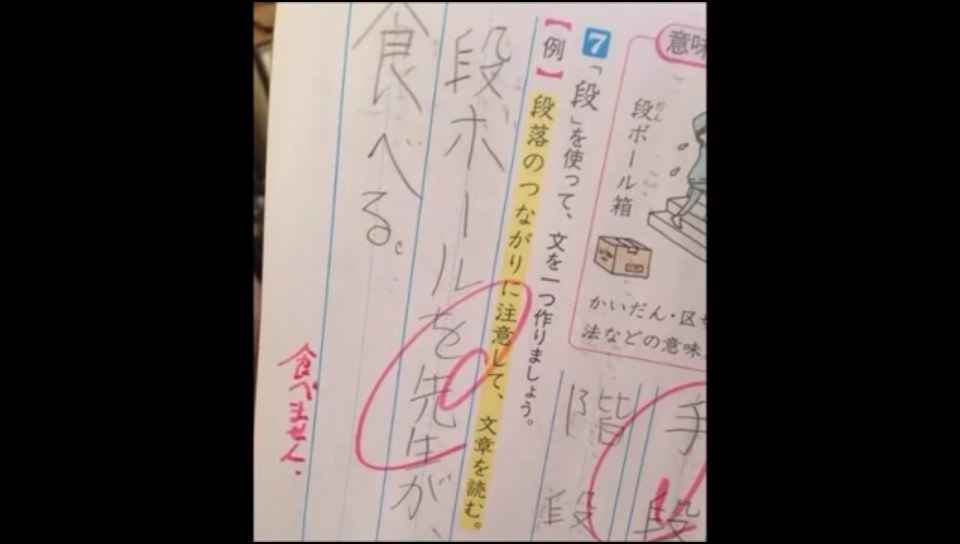 意味
段ボール箱
だん
かいだん・区
法などの意味
手段
階段
7「段」を使って、文を一つ作りましょう。
【例】段落のつながりに注意して、文章を読む。
段ボールを先生が、
食べる。
食べません。